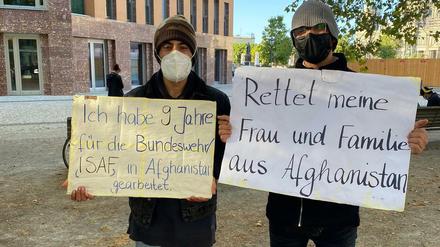 Ich habe 9 Jahre
für die Bundeswehr/
ISAF, in Afghanistan
gearbeitet.
Rettet meine
Frau und Familie
aus Afghanistan